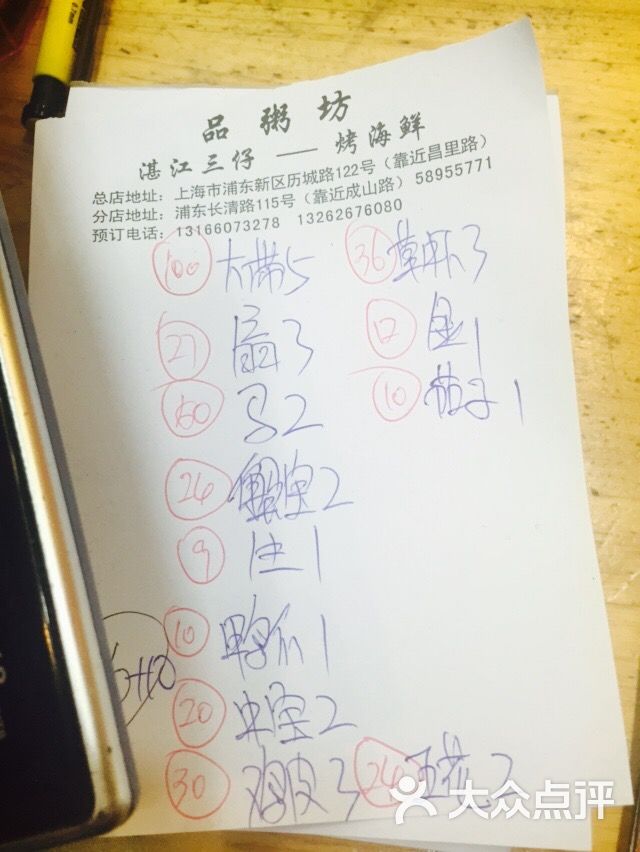 品粥坊
湛江三仔 —— 烤海鲜
总店地址：上海市浦东新区历城路122号（靠近昌里路）
分店地址：浦东长清路115号（靠近成山路）58955771
预订电话：13166073278 13262676080
100 大带5 36 草虾3
27 扇3 12 金1
60 马2 10 茄子1
24 2
9 生1
10 鸭爪1
20 2
30 鸡皮3 24 五花2
大众点评